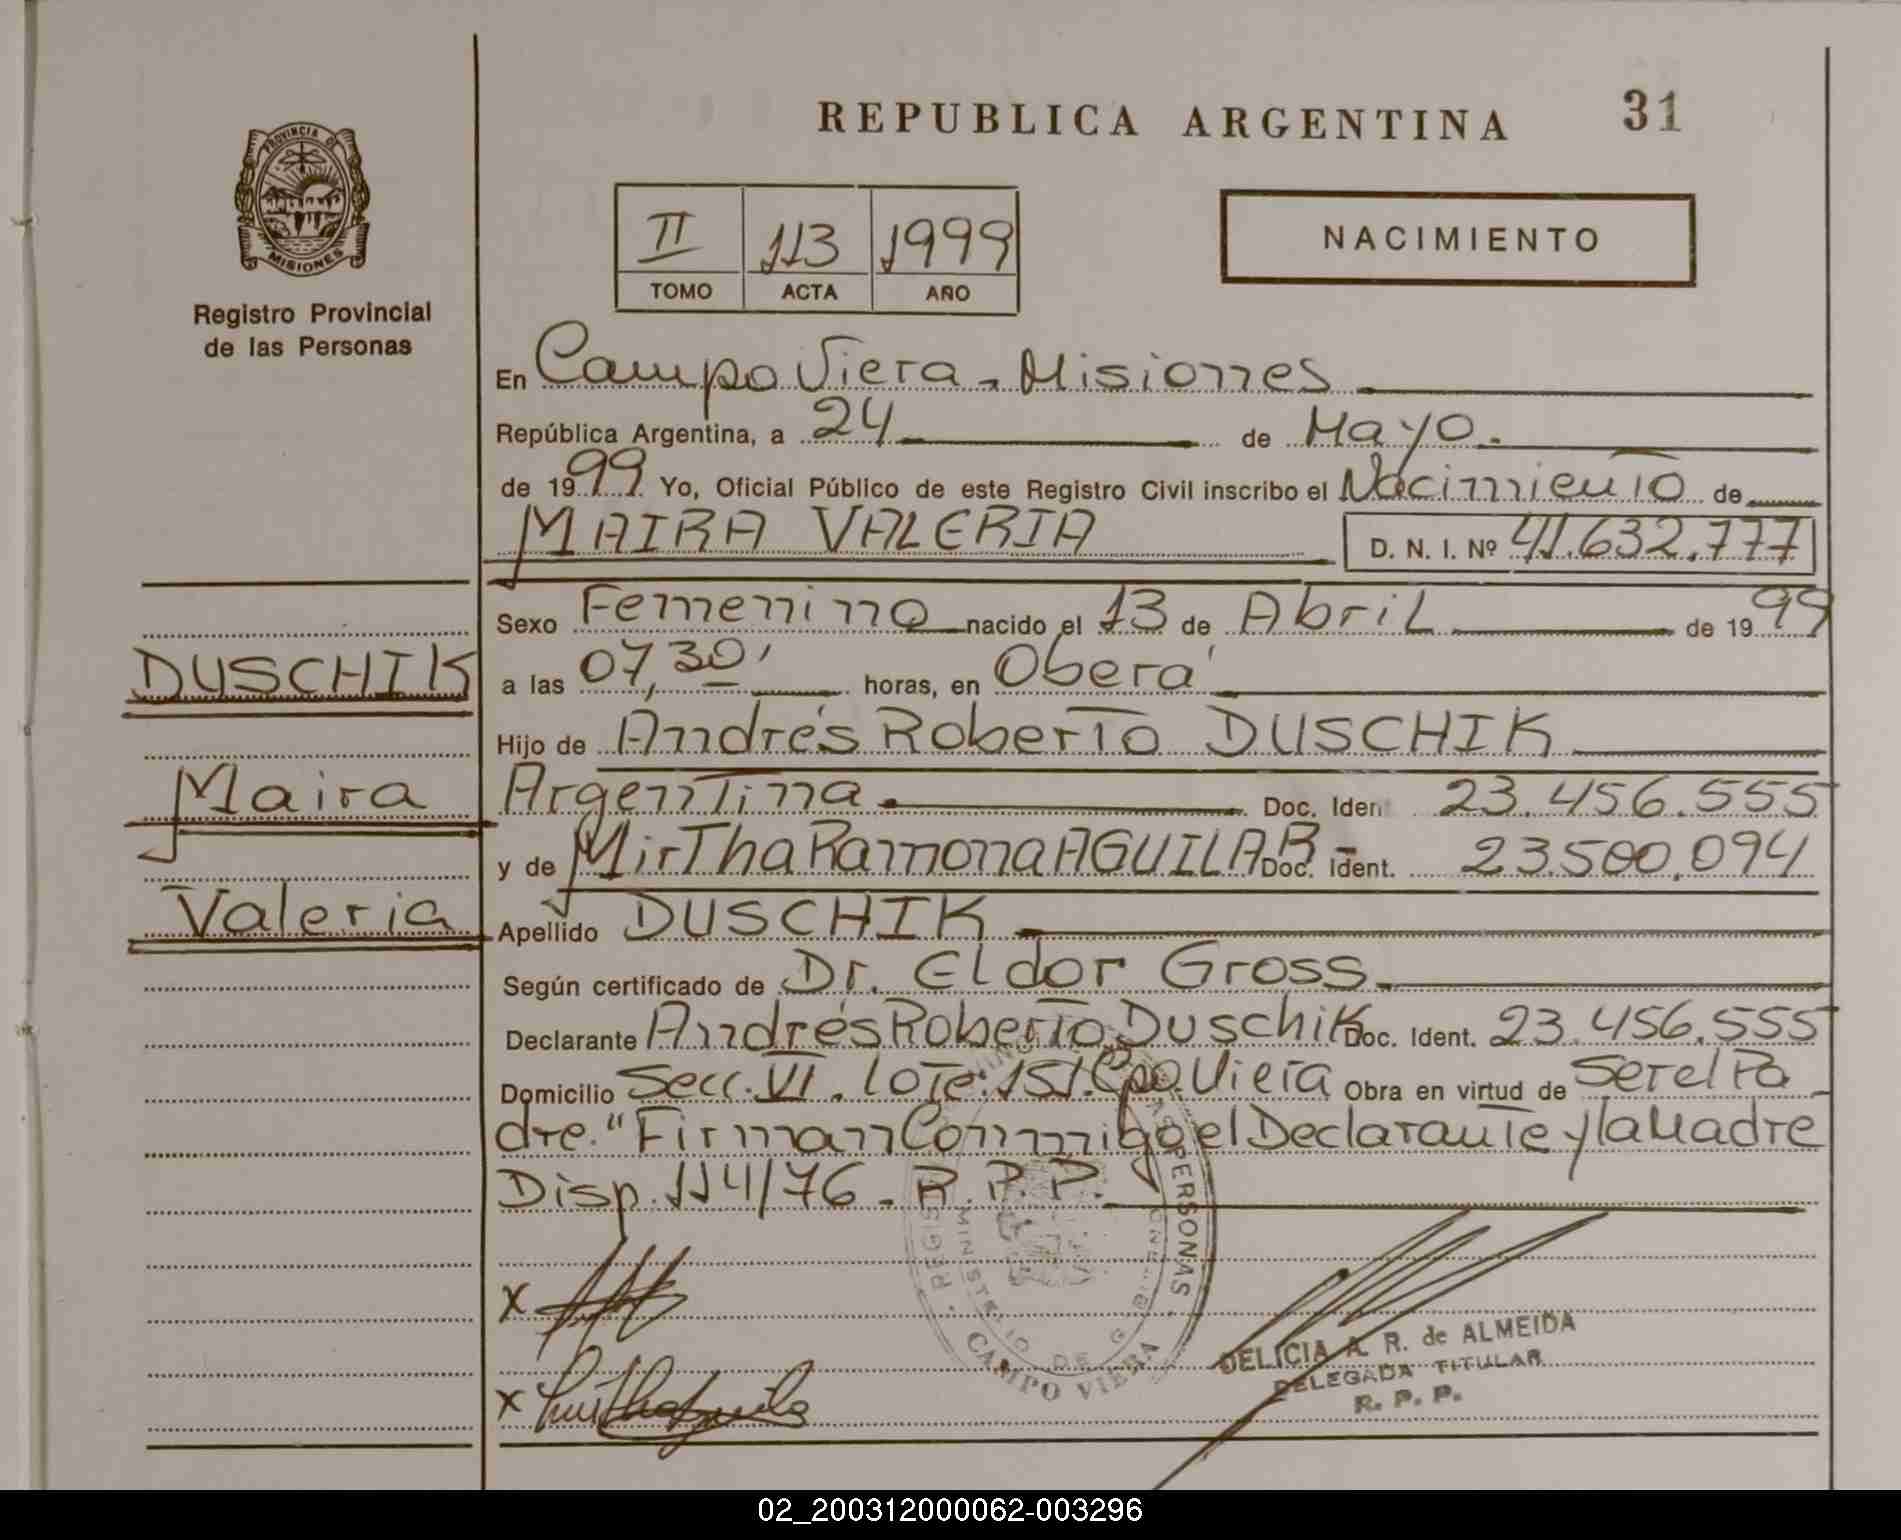 REPUBLICA ARGENTINA 31
PROVINCIA DE
MISIONES
Registro Provincial
de las Personas
II 113 1999
TOMO ACTA AÑO
NACIMIENTO
En Campo Viera - Misiones
República Argentina, a 24 de Mayo.
de 1999 Yo, Oficial Público de este Registro Civil inscribo el Nacimiento de
MAIRA VALERIA D. N. I. Nº 41.632.777
Sexo Femenino nacido el 13 de Abril de 1999
a las 07,30' horas, en Oberá
Hijo de Andrés Roberto DUSCHIK
Argentina Doc. Ident 23.456.555
y de Mirtha Ramona AGUILAR Doc. Ident. 23.500.094
Apellido DUSCHIK
Según certificado de Dr. Eldor Gross
Declarante Andrés Roberto Duschik Doc. Ident. 23.456.555
Domicilio Secc. VI. Lote: 151. Cpo. Viera Obra en virtud de Ser el Pa
dre. "Firman Conmigo el Declarante y la Madre
Disp. 114/76 - R. P. P.
DUSCHIK
Maira
Valeria
X
X Mirtha Aguila
PERSONAS
MINISTERIO DE G
CAMPO VIERA
DELICIA A. R. de ALMEIDA
DELEGADA TITULAR
R. P. P.
02_200312000062-003296